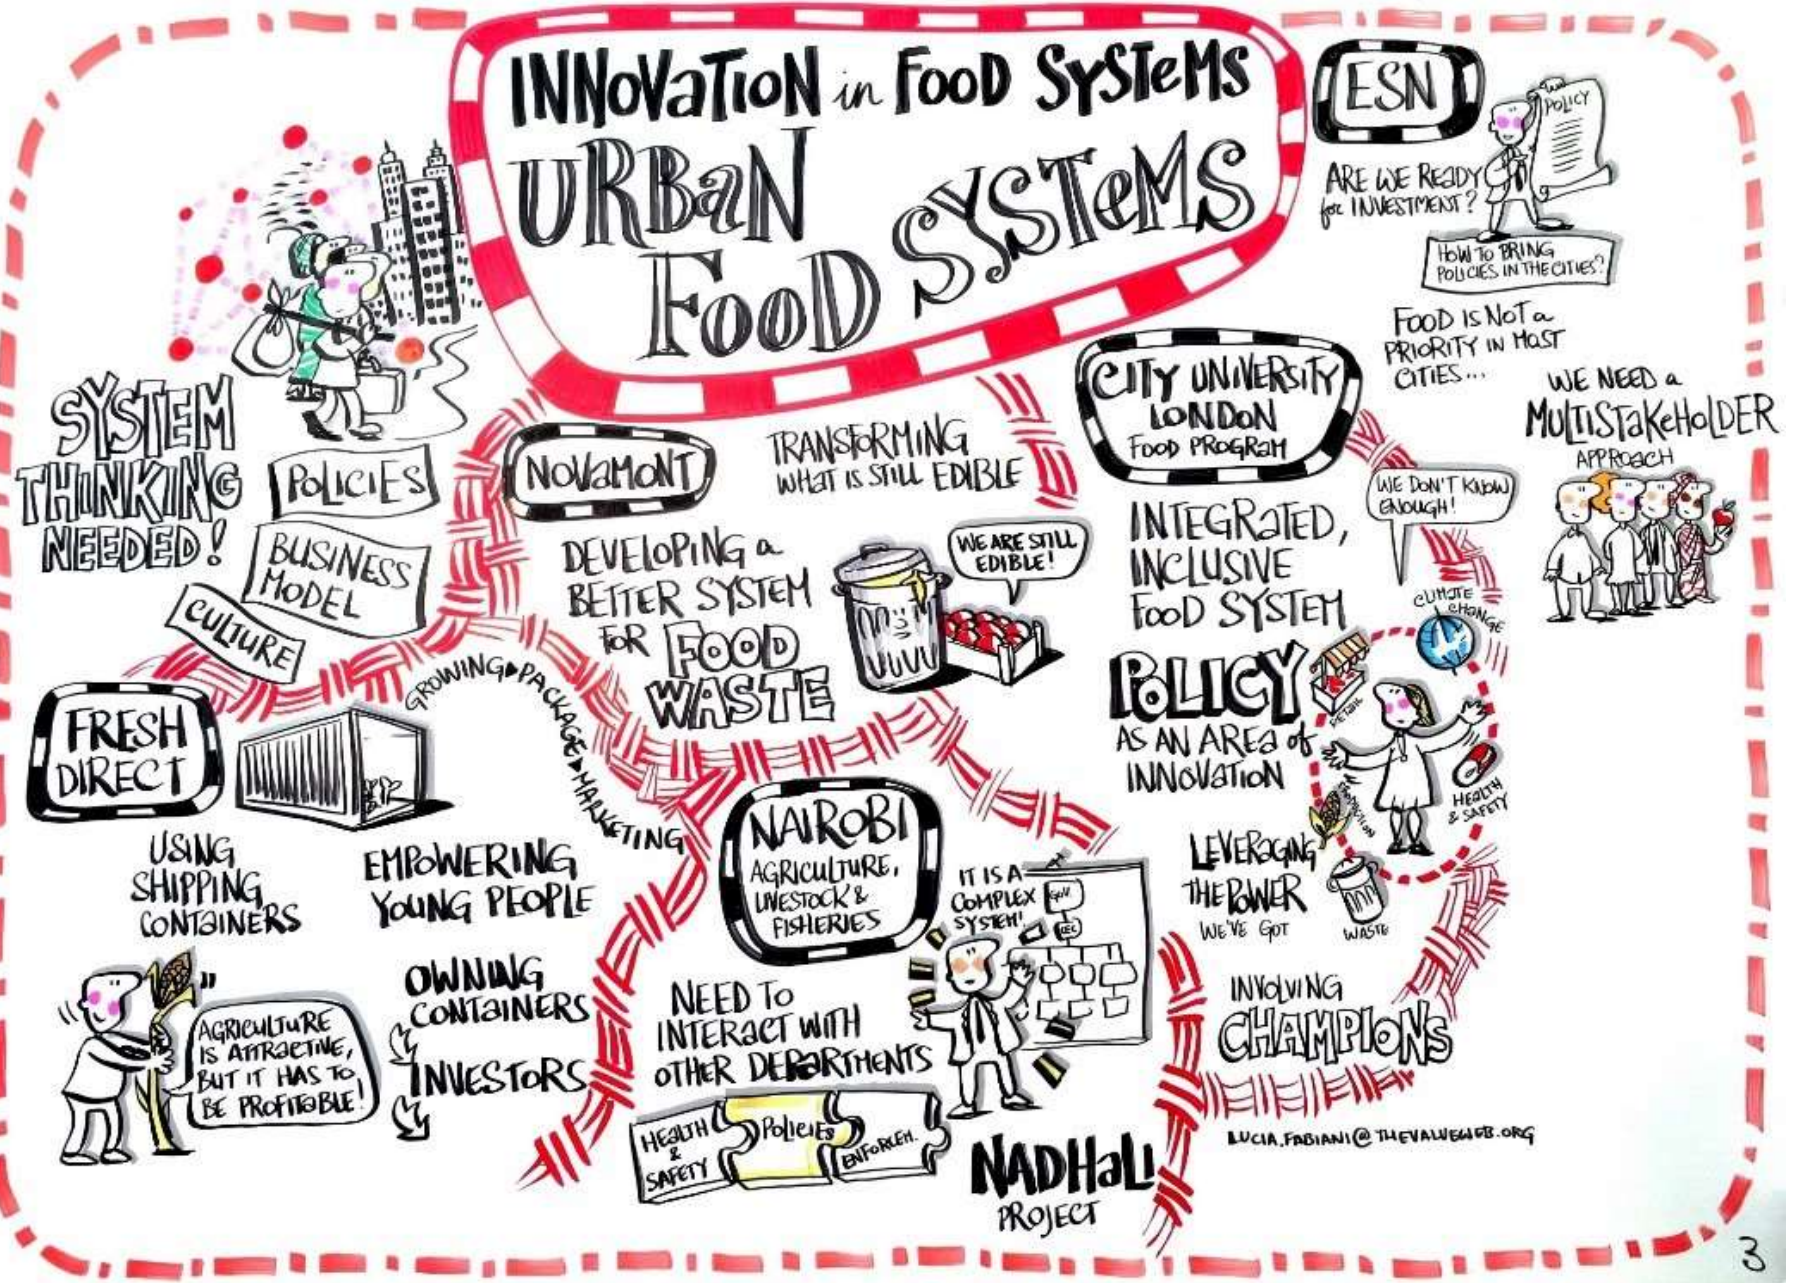 INNOVATION in FOOD SYSTEMS
URBAN
FOOD SYSTEMS
ESN
POLICY
ARE WE READY
for INVESTMENT?
HOW TO BRING
POLICIES IN THE CITIES?
FOOD IS NOT a
PRIORITY IN MOST
CITIES...
WE NEED a
MULTISTAKEHOLDER
APPROACH
SYSTEM
THINKING
NEEDED!
POLICIES
BUSINESS
MODEL
CULTURE
NOVAMONT
TRANSFORMING
WHAT IS STILL EDIBLE
DEVELOPING a
BETTER SYSTEM
FOR FOOD
WASTE
WE ARE STILL
EDIBLE!
CITY UNIVERSITY
LONDON
FOOD PROGRAM
WE DON'T KNOW
ENOUGH!
INTEGRATED,
INCLUSIVE
FOOD SYSTEM
POLICY
AS AN AREA of
INNOVATION
CLIMATE
CHANGE
RETAIL
HEALTH
& SAFETY
PRODUCTION
WASTE
LEVERAGING
THE POWER
WE'VE GOT
INVOLVING
CHAMPIONS
LUCIA.FABIANI@THEVALUEWEB.ORG
FRESH
DIRECT
GROWING PACKAGE MARKETING
USING
SHIPPING
CONTAINERS
EMPOWERING
YOUNG PEOPLE
AGRICULTURE
IS ATTRACTIVE,
BUT IT HAS TO
BE PROFITABLE!
OWNING
CONTAINERS
INVESTORS
NAIROBI
AGRICULTURE,
LIVESTOCK &
FISHERIES
IT IS A
COMPLEX
SYSTEM!
NEED TO
INTERACT WITH
OTHER DEPARTMENTS
HEALTH
&
SAFETY
POLICIES
ENFORCEM.
NADHALI
PROJECT
3